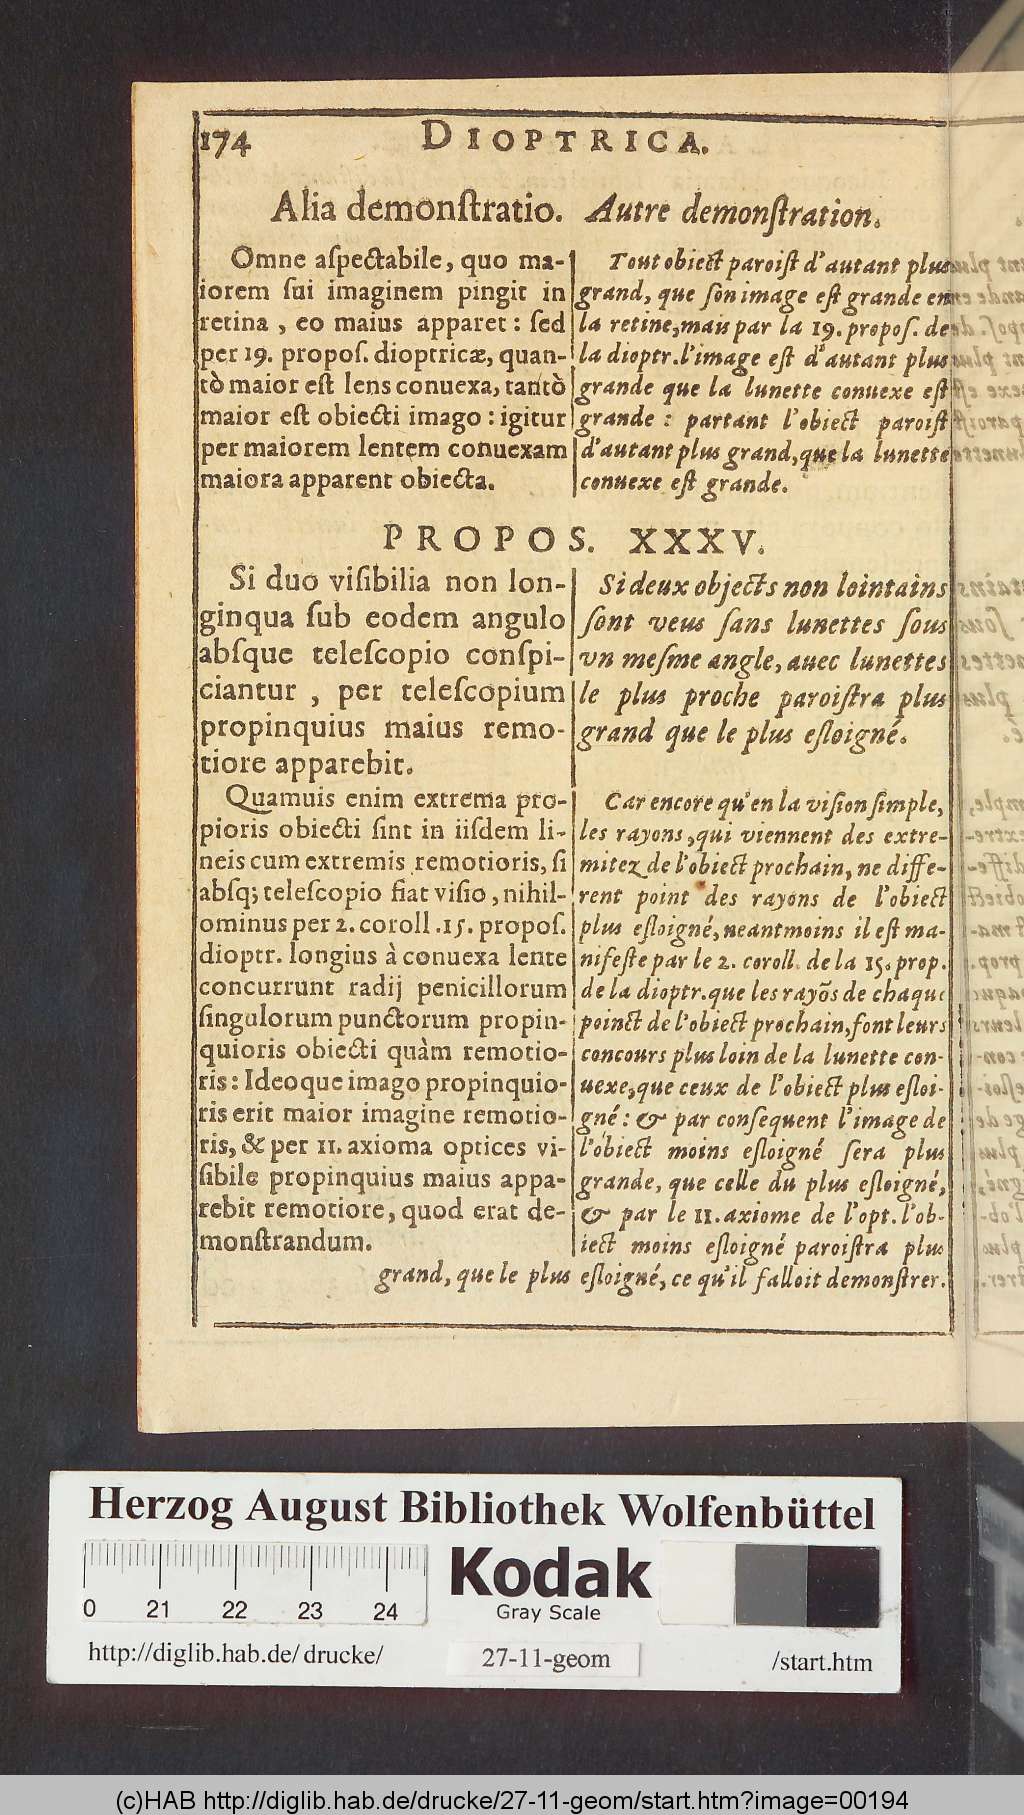 174 DIOPTRICA.
Alia demonſtratio.
Omne aſpectabile, quo ma-
iorem ſui imaginem pingit in
retina, eo maius apparet: ſed
per 19. propoſ. dioptricæ, quan-
tò maior eſt lens conuexa, tantò
maior eſt obiecti imago: igitur
per maiorem lentem conuexam
maiora apparent obiecta.
Autre demonſtration.
Tout obiect paroiſt d'autant plus
grand, que ſon image eſt grande en
la retine, mais par la 19. propoſ. de
la dioptr. l'image eſt d'autant plus
grande que la lunette conuexe eſt
grande: partant l'obiect paroiſt
d'autant plus grand, que la lunette
conuexe eſt grande.
PROPOS. XXXV.
Si duo viſibilia non lon-
ginqua ſub eodem angulo
abſque teleſcopio conſpi-
ciantur, per teleſcopium
propinquius maius remo-
tiore apparebit.
Quamuis enim extrema pro-
pioris obiecti ſint in iiſdem li-
neis cum extremis remotioris, ſi
abſq; teleſcopio fiat viſio, nihil-
ominus per 2. coroll. 15. propoſ.
dioptr. longius à conuexa lente
concurrunt radij penicillorum
ſingulorum punctorum propin-
quioris obiecti quàm remotio-
ris: Ideoque imago propinquio-
ris erit maior imagine remotio-
ris, & per 11. axioma optices vi-
ſibile propinquius maius appa-
rebit remotiore, quod erat de-
monſtrandum.
Si deux objects non lointains
ſont veus ſans lunettes ſous
vn meſme angle, auec lunettes
le plus proche paroiſtra plus
grand que le plus eſloigné.
Car encore qu'en la viſion ſimple,
les rayons, qui viennent des extre-
mitez de l'obiect prochain, ne diffe-
rent point des rayons de l'obiect
plus eſloigné, neantmoins il eſt ma-
nifeſte par le 2. coroll. de la 15. prop.
de la dioptr. que les rayõs de chaque
poinct de l'obiect prochain, font leurs
concours plus loin de la lunette con-
uexe, que ceux de l'obiect plus eſloi-
gné: & par conſequent l'image de
l'obiect moins eſloigné ſera plus
grande, que celle du plus eſloigné,
& par le 11. axiome de l'opt. l'ob-
iect moins eſloigné paroiſtra plus
grand, que le plus eſloigné, ce qu'il falloit demonſtrer.
Herzog August Bibliothek Wolfenbüttel
0 21 22 23 24
Kodak
Gray Scale
http://diglib.hab.de/drucke/ 27-11-geom /start.htm
(c)HAB http://diglib.hab.de/drucke/27-11-geom/start.htm?image=00194